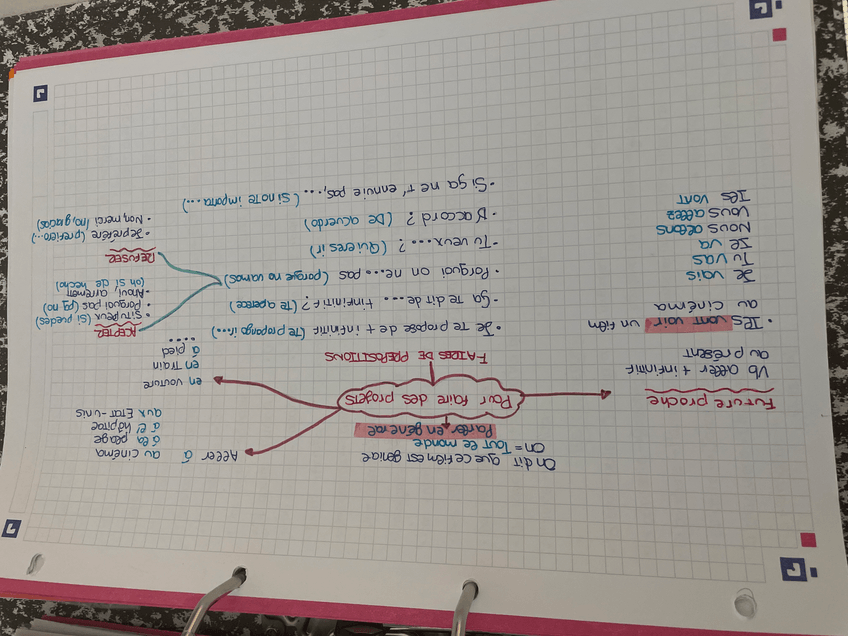 On dit que ce film est génial
on = Tout le monde
Parler en général
Pour faire des projets
Future proche
Vb aller + infinitif
au présent
• Ils vont voir un film
au cinéma
Je vais
Tu vas
Il va
Nous allons
Vous allez
Ils vont
Aller à
au cinéma
à la plage
à l'hôpital
aux État-unis
en voiture
en train
à pied
....
FAIRE DE PREPOSITIONS
• Je te propose de + infinitif (te propongo ir...)
• Ça te dit de.... + infinitif? (te apetece)
• Porquoi on ne.... pas (porque no vamos)
• Tu veux....? (Quieres ir)
• D'acord? (De acuerdo)
• Si ça ne t'ennuie pas,... (si no te importa...
ACEPTER
• Si tu peux (si puedes)
• Porquoi pas (pq no)
• Ahoui,
(oh si de hecho)
REFUSER
• Je préfère (prefiero...)
• Non, merci (no, gracias)